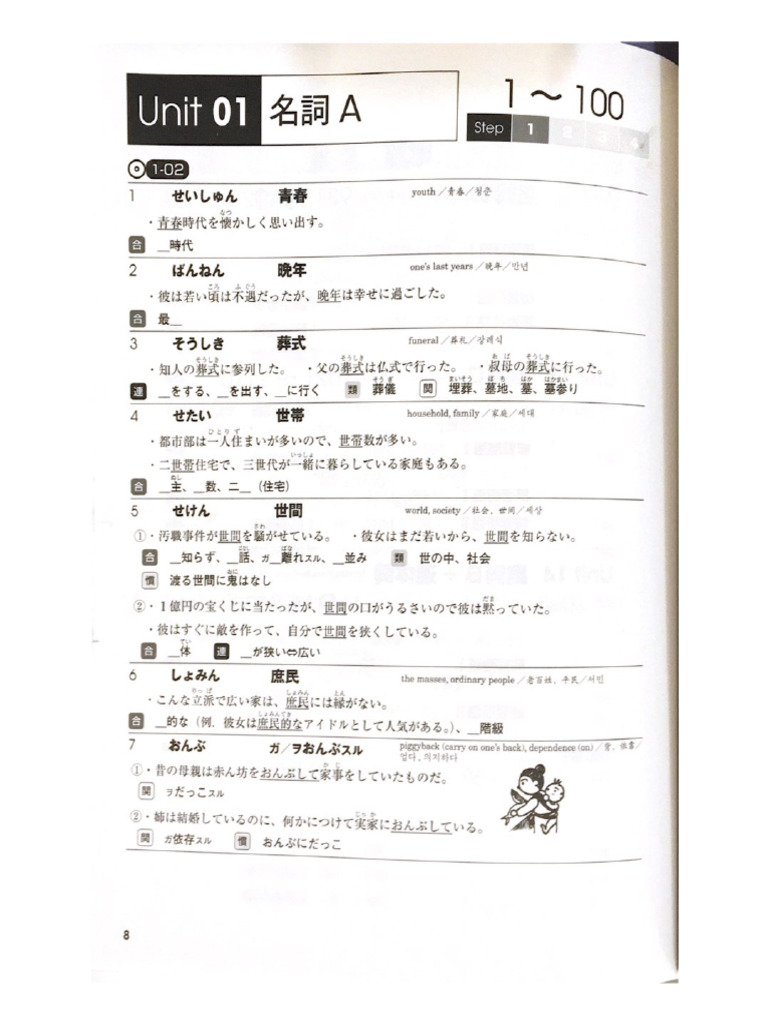 Unit 01 名詞 A
1 ～ 100
Step 1 2 3 4
1-02
1 せいしゅん 青春 youth／青春／청춘
・青春時代を懐かしく思い出す。
合 __時代
2 ばんねん 晩年 one's last years／晚年／만년
・彼は若い頃は不遇だったが、晩年は幸せに過ごした。
合 最__
3 そうしき 葬式 funeral／葬礼／장례식
・知人の葬式に参列した。 ・父の葬式は仏式で行った。 ・叔母の葬式に行った。
連 __をする、__を出す、__に行く 類 葬儀 関 埋葬、墓地、墓、墓参り
4 せたい 世帯 household, family／家庭／세대
・都市部は一人住まいが多いので、世帯数が多い。
・二世帯住宅で、三世代が一緒に暮らしている家庭もある。
合 __主、__数、二__（住宅）
5 せけん 世間 world, society／社会、世间／세상
①・汚職事件が世間を騒がせている。 ・彼女はまだ若いから、世間を知らない。
合 __知らず、__話、ガ__離れスル、__並み 類 世の中、社会
慣 渡る世間に鬼はなし
②・１億円の宝くじに当たったが、世間の口がうるさいので彼は黙っていた。
・彼はすぐに敵を作って、自分で世間を狭くしている。
合 __体 連 __が狭い⇔広い
6 しょみん 庶民 the masses, ordinary people／老百姓、平民／서민
・こんな立派で広い家は、庶民には縁がない。
合 __的な（例．彼女は庶民的なアイドルとして人気がある。）、__階級
7 おんぶ ガ／ヲおんぶスル piggyback (carry on one's back), dependence (on)／背、依靠／
업다, 의지하다
①・昔の母親は赤ん坊をおんぶして家事をしていたものだ。
関 ヲだっこスル
②・姉は結婚しているのに、何かにつけて実家におんぶしている。
関 ガ依存スル 慣 おんぶにだっこ
8